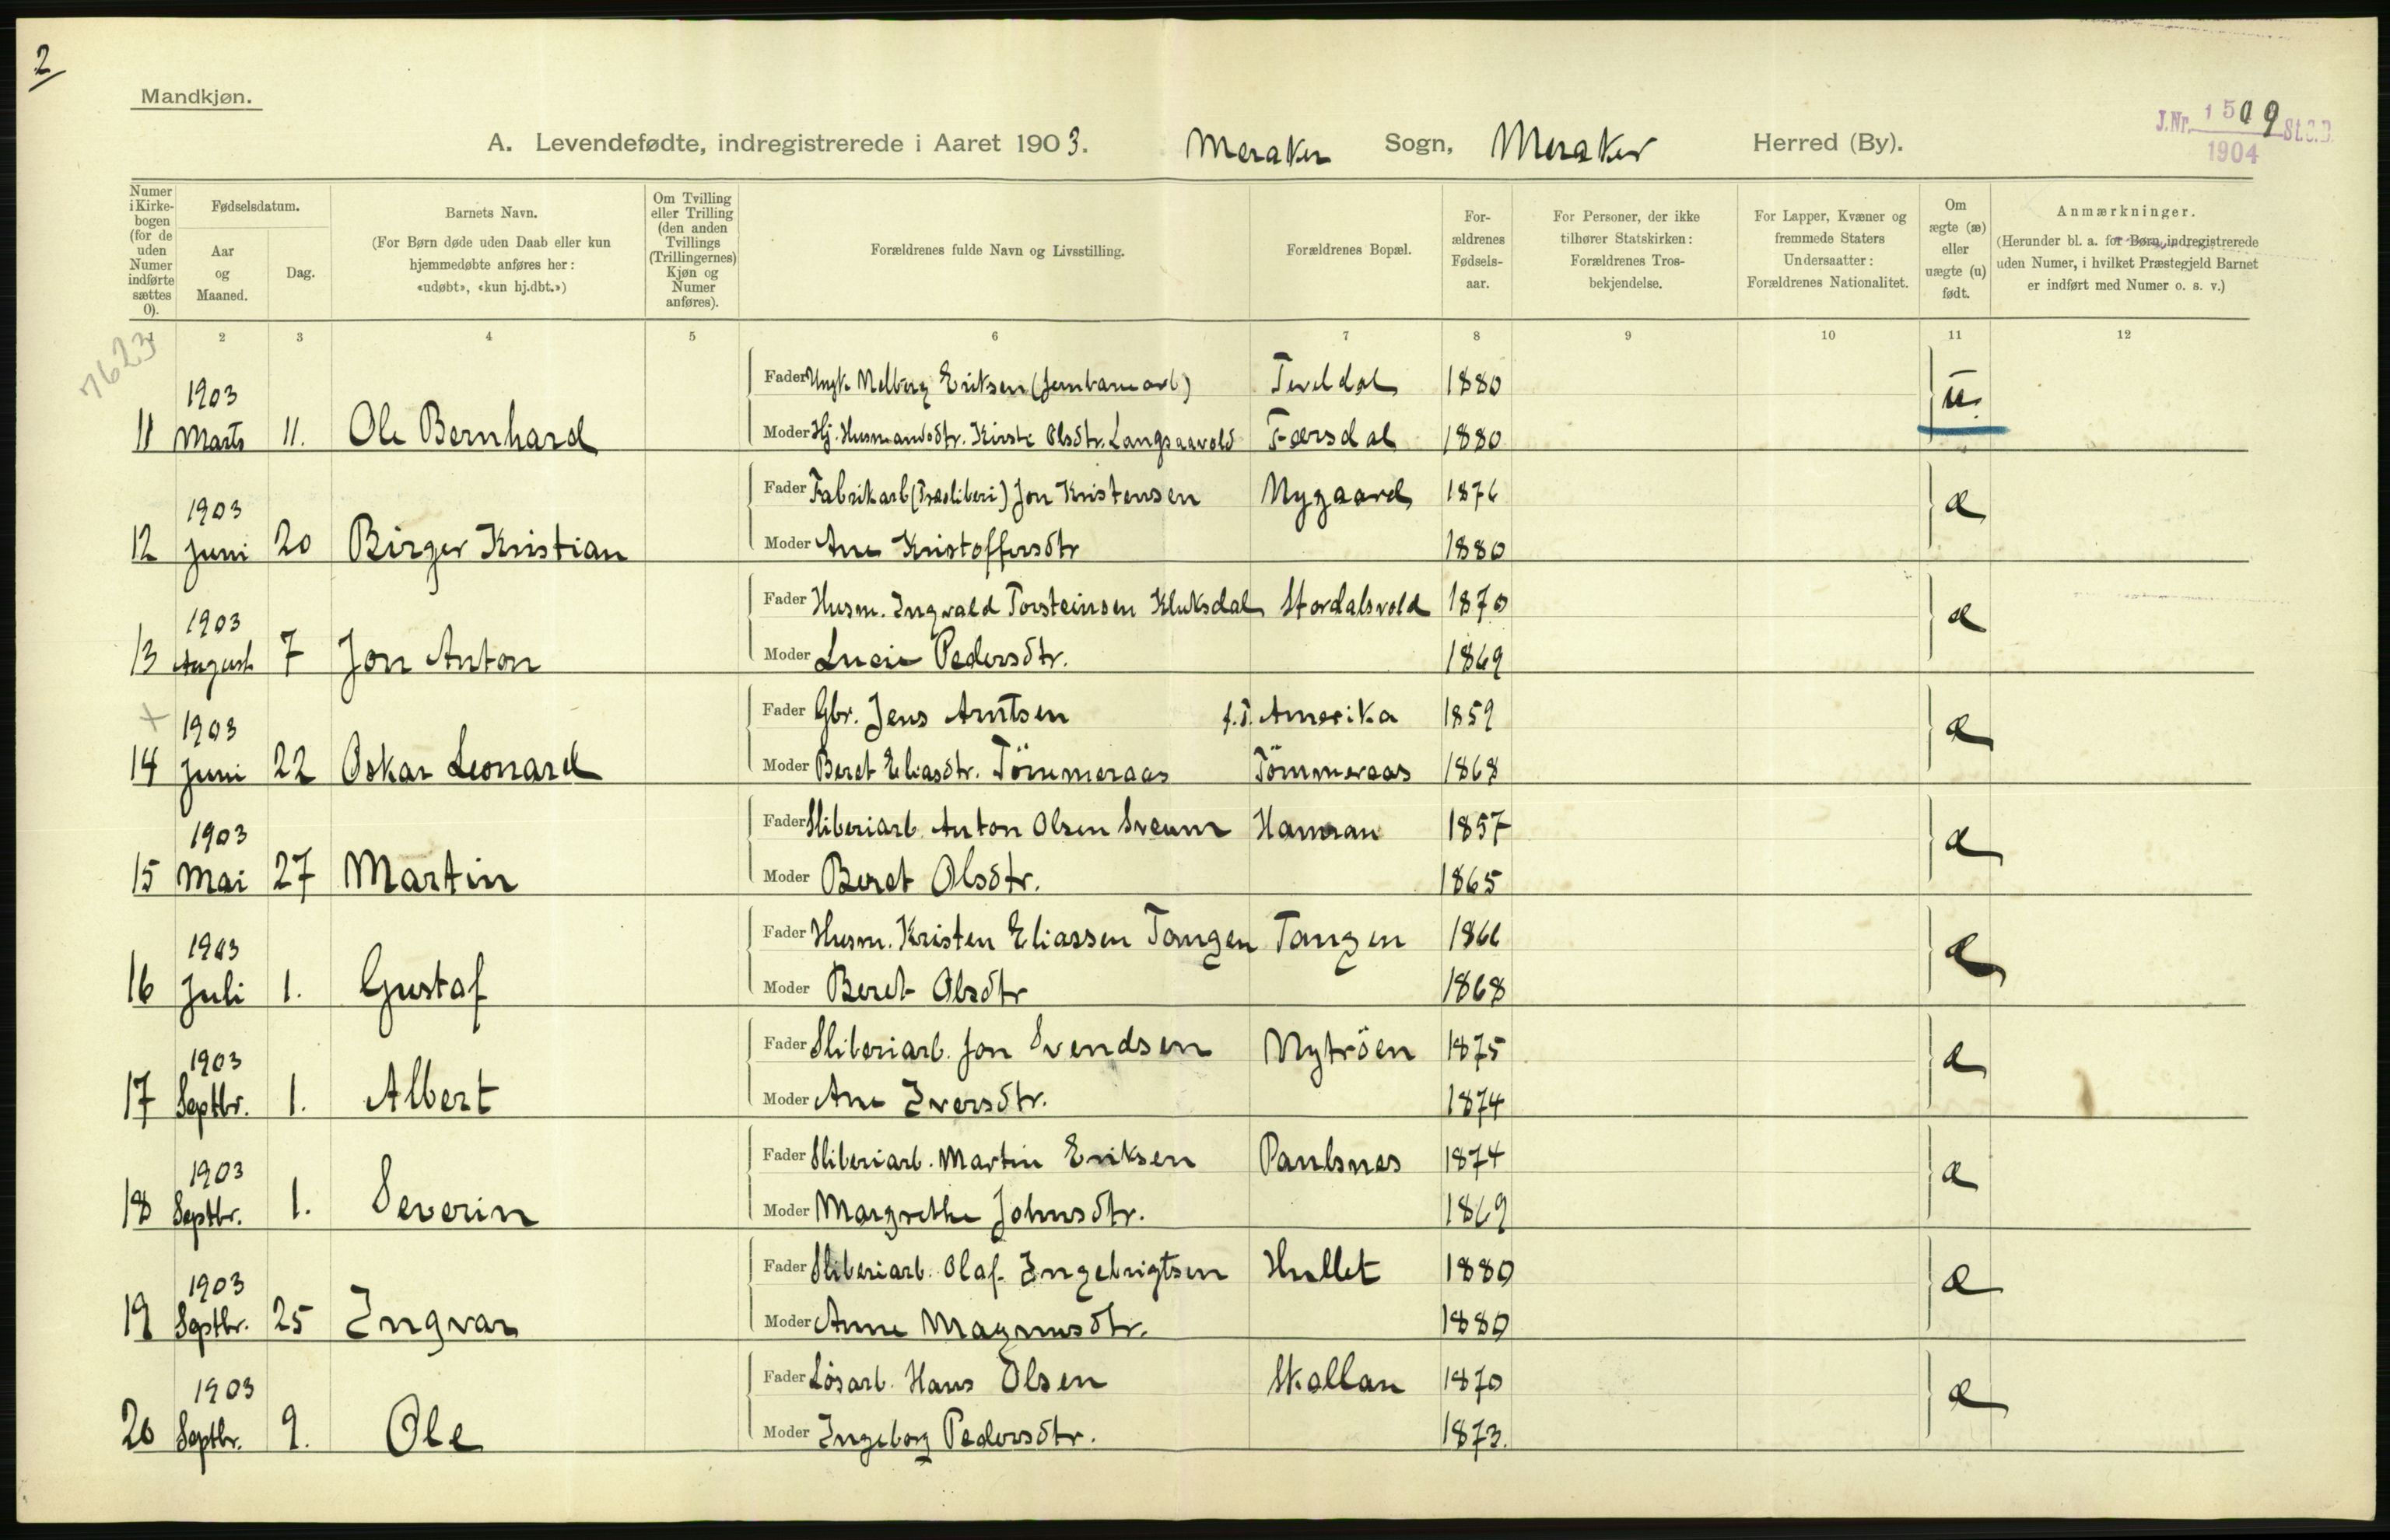 2
Mandkjøn.
A. Levendefødte, indregistrerede i Aaret 1903. Meraker Sogn, Meraker Herred (By).
J.Nr. 1509 St.C.B.
1904
Numer i Kirkebogen (for de uden Numer indførte sættes 0).
Fødselsdatum.
Aar og Maaned.
Dag.
Barnets Navn.
(For Børn døde uden Daab eller kun hjemmedøbte anføres her: «udøbt», «kun hj.dbt.»)
Om Tvilling eller Trilling (den anden Tvillings (Trillingernes) Kjøn og Numer anføres).
Forældrenes fulde Navn og Livsstilling.
Forældrenes Bopæl.
For-ældrenes Fødsels-aar.
For Personer, der ikke tilhører Statskirken: Forældrenes Tros-bekjendelse.
For Lapper, Kvæner og fremmede Staters Undersaatter: Forældrenes Nationalitet.
Om ægte (æ) eller uægte (u) født.
Anmærkninger.
(Herunder bl. a. for Børn, indregistrerede uden Numer, i hvilket Præstegjeld Barnet er indført med Numer o. s. v.)
1 2 3 4 5 6 7 8 9 10 11 12
7623
1903 Fader Ungk. Melberg Eriksen (Jernbanearb) Teveldal 1880 u.
11 Marts 11. Ole Bernhard Moder Hj. Husmandsdtr. Kirste Olsdtr. Langsaavold Færsdal 1880
1903 Fader Fabrikarb (Træsliberi) Jon Kristensen Nygaard 1876 æ
12 Juni 20 Birger Kristian Moder Ane Kristoffersdtr 1880
1903 Fader Husm. Ingvald Torsteinsen Kluksdal Stordalsvold 1870 æ
13 August 7 Jon Anton Moder Lucie Pedersdtr. 1869
+ 1903 Fader Gbr. Jens Arntsen f.T. Amerika 1859 æ
14 Juni 22 Oskar Leonard Moder Beret Eliasdtr. Tömmeraas Tömmeraas 1868
1903 Fader Sliberiarb. Anton Olsen Sveum Hamran 1857 æ
15 Mai 27 Martin Moder Beret Olsdtr. 1865
1903 Fader Husm. Kristen Eliassen Tangen Tangen 1866 æ
16 Juli 1. Gustaf Moder Beret Olsdtr 1868
1903 Fader Sliberiarb. Jon Svendsen Nytröen 1875 æ
17 Septbr. 1. Albert Moder Ane Iversdtr. 1874
1903 Fader Sliberiarb. Martin Eriksen Paulsnes 1874 æ
18 Septbr. 1. Severin Moder Margrethe Johnsdtr. 1869
1903 Fader Sliberiarb. Olaf Ingebrigtsen Hullet 1880 æ
19 Septbr. 25 Ingvar Moder Anne Magnusdtr. 1880
1903 Fader Løsarb. Hans Olsen Skallan 1870 æ
20 Septbr. 9. Ole Moder Ingeborg Pedersdtr. 1873.